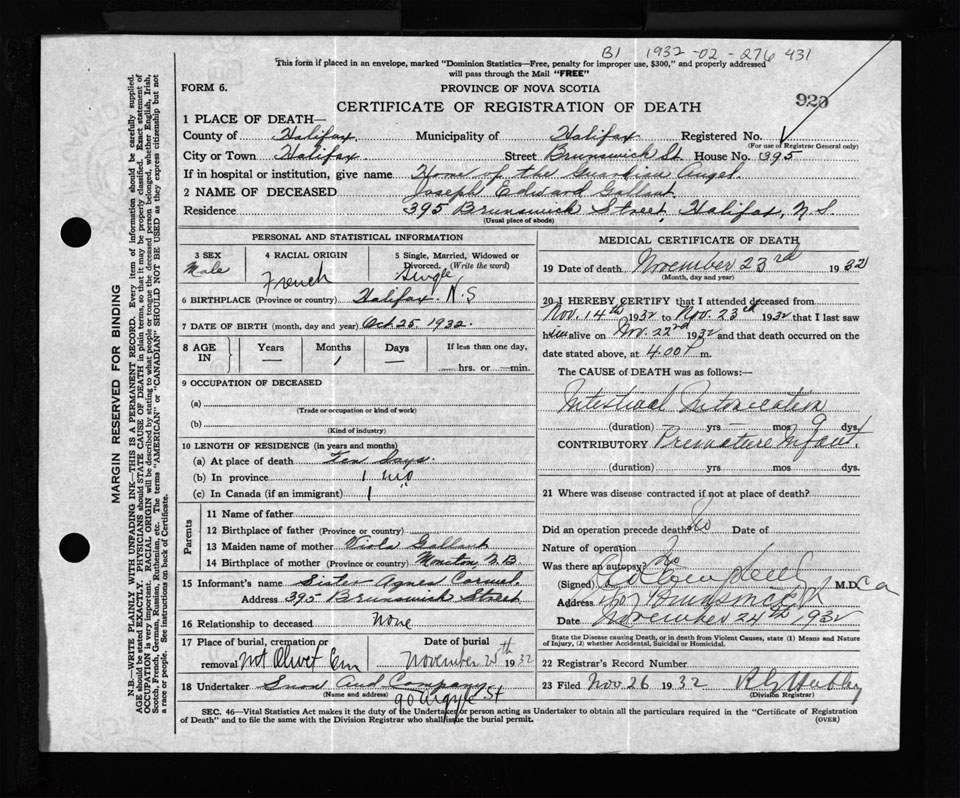 B1 1932-02-276 431
This form if placed in an envelope, marked "Dominion Statistics—Free, penalty for improper use, $300," and properly addressed
will pass through the Mail "FREE"
FORM 6.
PROVINCE OF NOVA SCOTIA
920
CERTIFICATE OF REGISTRATION OF DEATH
1 PLACE OF DEATH—
County of Halifax Municipality of Halifax Registered No.
(For use of Registrar General only)
City or Town Halifax Street Brunswick St. House No. 395
If in hospital or institution, give name Home of the Guardian Angel
2 NAME OF DECEASED Joseph Edward Gallant
Residence 395 Brunswick Street, Halifax, N.S.
(Usual place of abode)
PERSONAL AND STATISTICAL INFORMATION
3 SEX Male
4 RACIAL ORIGIN French
5 Single, Married, Widowed or Divorced. (Write the word) Single
6 BIRTHPLACE (Province or country) Halifax. N.S
7 DATE OF BIRTH (month, day and year) Oct. 25. 1932.
8 AGE IN Years — Months 1 Days — If less than one day, hrs. or min.
9 OCCUPATION OF DECEASED
(a)
(Trade or occupation or kind of work)
(b)
(Kind of industry)
10 LENGTH OF RESIDENCE (in years and months)
(a) At place of death Ten days.
(b) In province 1 mo
(c) In Canada (if an immigrant) 1
Parents
11 Name of father
12 Birthplace of father (Province or country)
13 Maiden name of mother Viola Gallant
14 Birthplace of mother (Province or country) Moncton, N.B.
15 Informant's name Sister Agnes Carmel
Address 395 Brunswick Street
16 Relationship to deceased None
17 Place of burial, cremation or removal Mt Olivet Cem Date of burial November 26th 1932
18 Undertaker Snow and Company
(Name and address) 90 Argyle St
MEDICAL CERTIFICATE OF DEATH
19 Date of death November 23rd 1932
(Month, day and year)
20 I HEREBY CERTIFY that I attended deceased from
Nov. 14th 1932 to Nov. 23rd 1932 that I last saw
him alive on Nov. 22nd 1932 and that death occurred on the
date stated above, at 4.00 P m.
The CAUSE of DEATH was as follows:—
Intestinal Intoxication
(duration) yrs — mos 9 dys.
CONTRIBUTORY Premature Infant.
(duration) yrs mos dys.
21 Where was disease contracted if not at place of death?
Did an operation precede death? No Date of
Nature of operation
Was there an autopsy? No
(Signed) M.D.
Address
Date November 24th 1932
State the Disease causing Death, or in death from Violent Causes, state (1) Means and Nature
of Injury, (2) whether Accidental, Suicidal or Homicidal.
22 Registrar's Record Number
23 Filed Nov 26 1932
(Division Registrar)
SEC. 46—Vital Statistics Act makes it the duty of the Undertaker or person acting as Undertaker to obtain all the particulars required in the "Certificate of Registration
of Death" and to file the same with the Division Registrar who shall issue the burial permit.
(OVER)
MARGIN RESERVED FOR BINDING
N.B.—WRITE PLAINLY WITH UNFADING INK—THIS IS A PERMANENT RECORD. Every item of information should be carefully supplied.
AGE should be stated EXACTLY. PHYSICIANS should STATE CAUSE OF DEATH in plain terms, so that it may be properly classified. Exact statement of
OCCUPATION is very important. RACIAL ORIGIN will be described by stating to what people or tongue the deceased person belonged, whether English, Irish,
Scotch, French, German, Russian, Ruthenian, etc. The terms "AMERICAN" or "CANADIAN" SHOULD NOT BE USED as they express citizenship but not
a race or people. See instructions on back of Certificate.